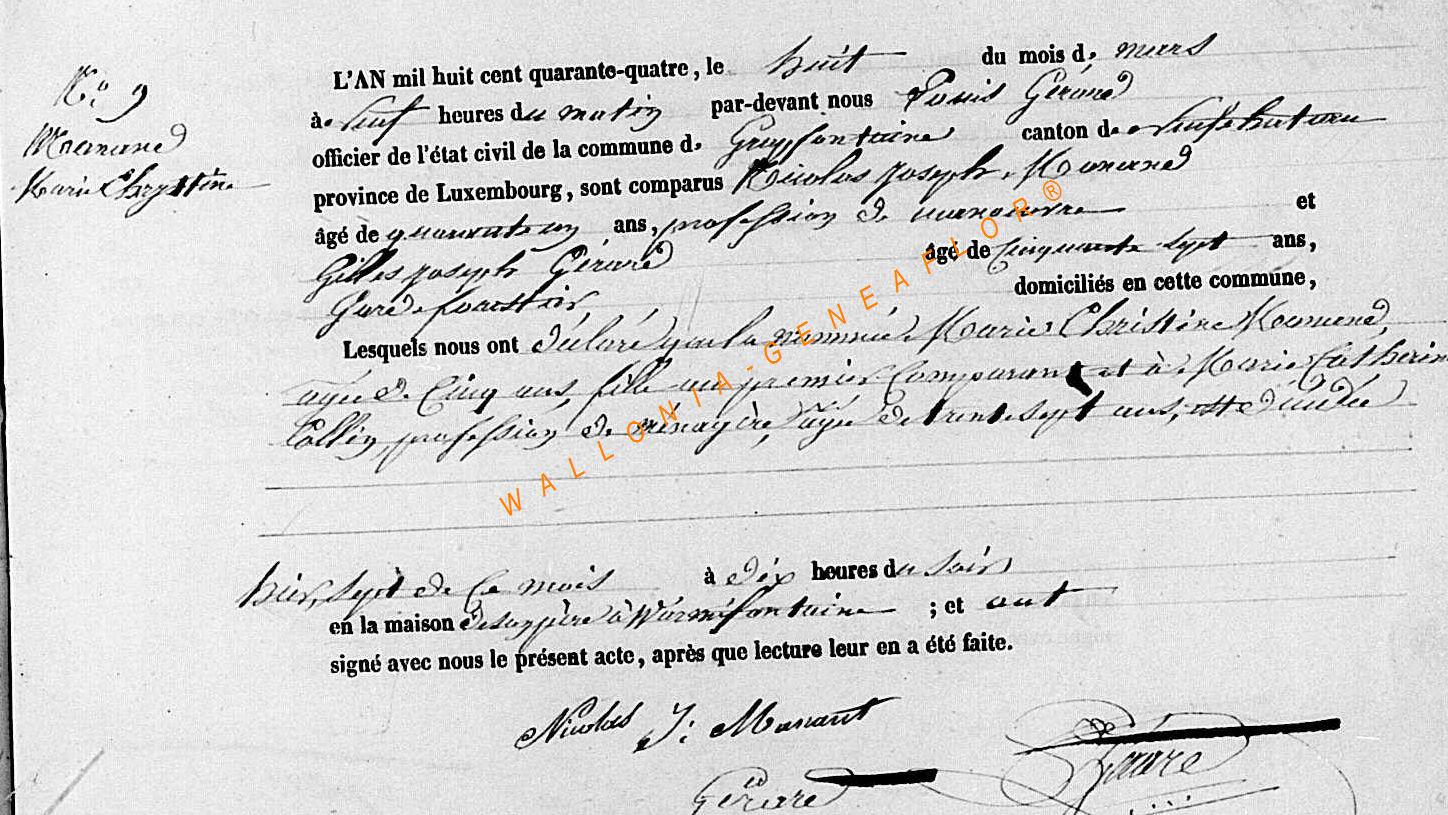 No 9
Manand
Marie Chrystine
L'AN mil huit cent quarante-quatre, le huit du mois de mars
à neuf heures du matin par-devant nous Louis Gérard
officier de l'état civil de la commune de Grapfontaine canton de Neufchateau
province de Luxembourg, sont comparus Nicolas Joseph Manand
âgé de quarante un ans, profession de manoeuvre et
Gilles Joseph Gérard âgé de cinquante sept ans,
Garde forestier, domiciliés en cette commune,
Lesquels nous ont déclaré que la nommée Marie Christine Manand,
agée de Cinq ans, fille au premier Comparant et à Marie Catherine
Collin, profession de ménagère, agée de trente sept ans, est décédée
hier, sept de ce mois à dix heures du soir
en la maison de son père à Warmifontaine ; et ont
signé avec nous le présent acte, après que lecture leur en a été faite.
Nicolas J: Manant
Gérard
Gérard
WALLONIA-GENEAFLOR®